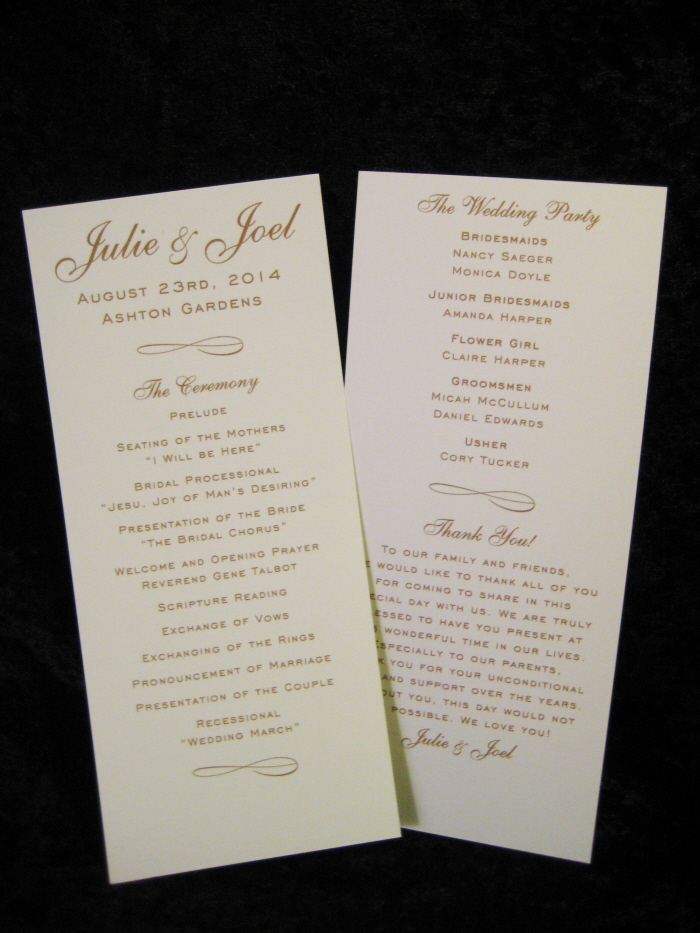 Julie & Joel
August 23rd, 2014
Ashton Gardens
The Ceremony
Prelude
Seating of the Mothers
"I Will be Here"
Bridal Processional
"Jesu, Joy of Man's Desiring"
Presentation of the Bride
"The Bridal Chorus"
Welcome and Opening Prayer
Reverend Gene Talbot
Scripture Reading
Exchange of Vows
Exchanging of the Rings
Pronouncement of Marriage
Presentation of the Couple
Recessional
"Wedding March"
The Wedding Party
Bridesmaids
Nancy Saeger
Monica Doyle
Junior Bridesmaids
Amanda Harper
Flower Girl
Claire Harper
Groomsmen
Micah McCullum
Daniel Edwards
Usher
Cory Tucker
Thank You!
To our family and friends,
would like to thank all of you
for coming to share in this
day with us. We are truly
to have you present at
wonderful time in our lives.
to our parents,
you for your unconditional
and support over the years.
you, this day would not
possible. We love you!
Julie & Joel